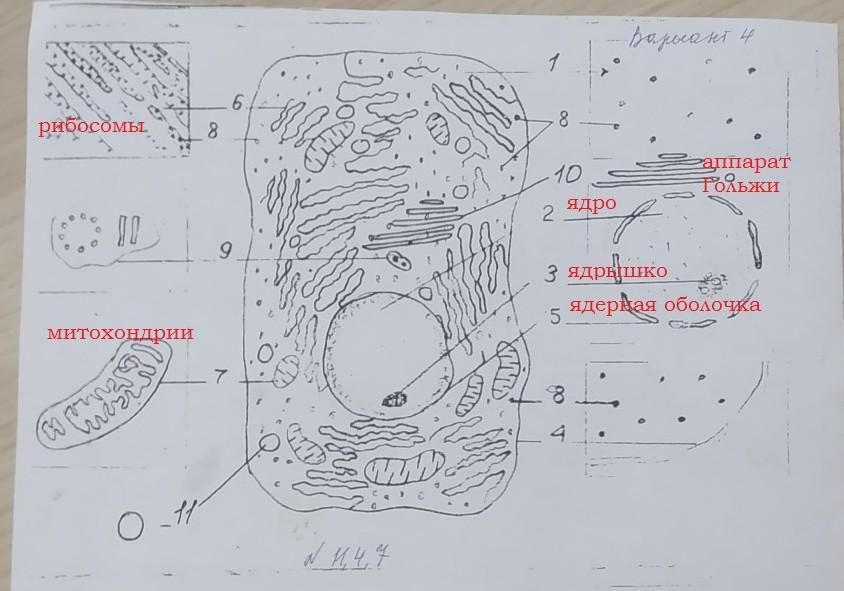 Вариант 4
1
6
рибосомы
8
8
аппарат
Гольжи
10
ядро
2
9
3
ядрышко
ядерная оболочка
5
митохондрии
7
8
8
4
11
N 11,4,7